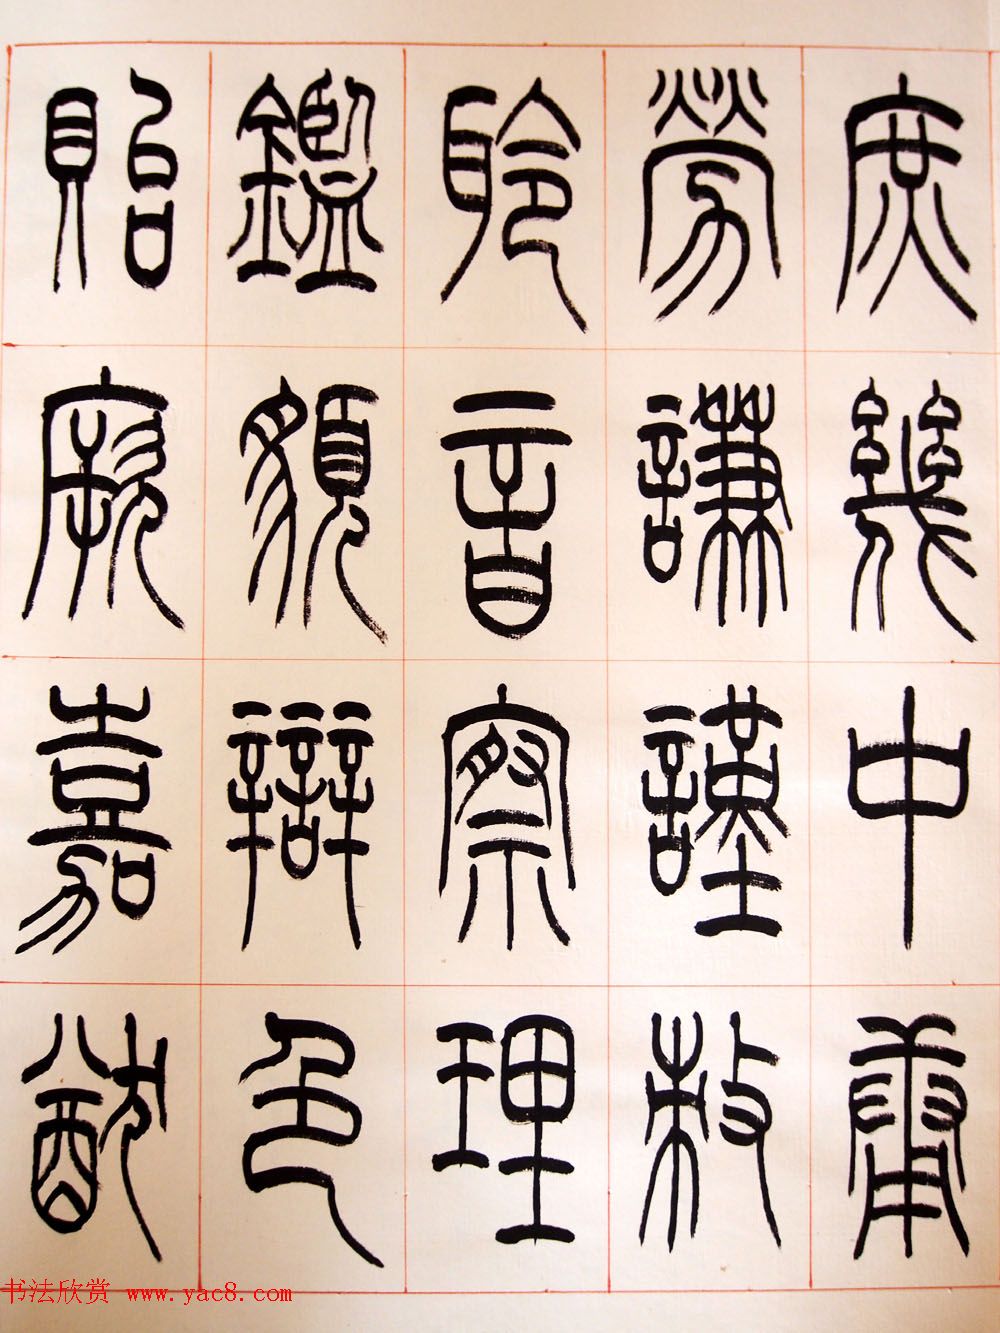 庶幾中庸
勞謙謹敕
聆音察理
鑑貌辯色
貽厥嘉猷
书法欣赏 www.yac8.com